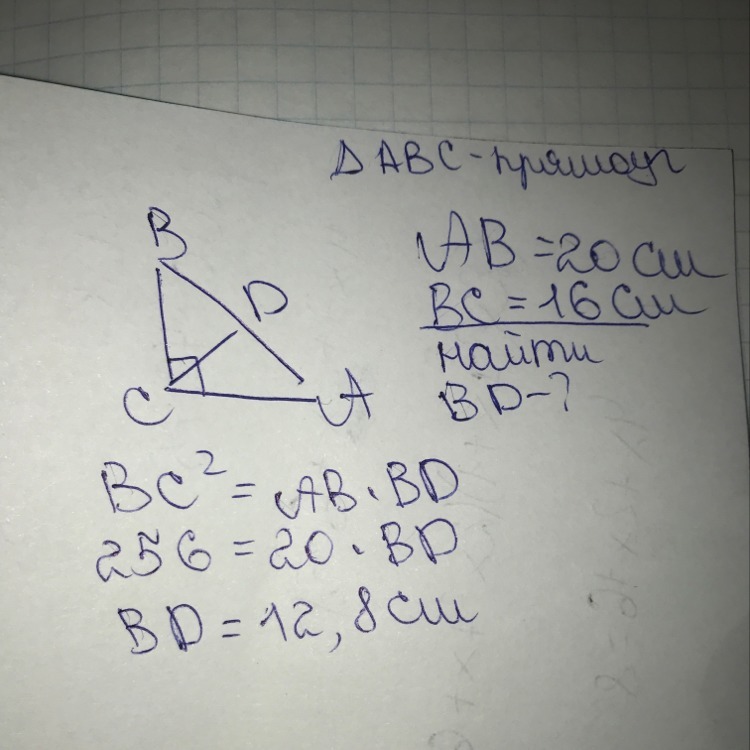 ΔABC-прямоуг
B
D
C
A
AB=20см
BC=16см
найти
BD-?
BC²=AB·BD
256=20·BD
BD=12,8см